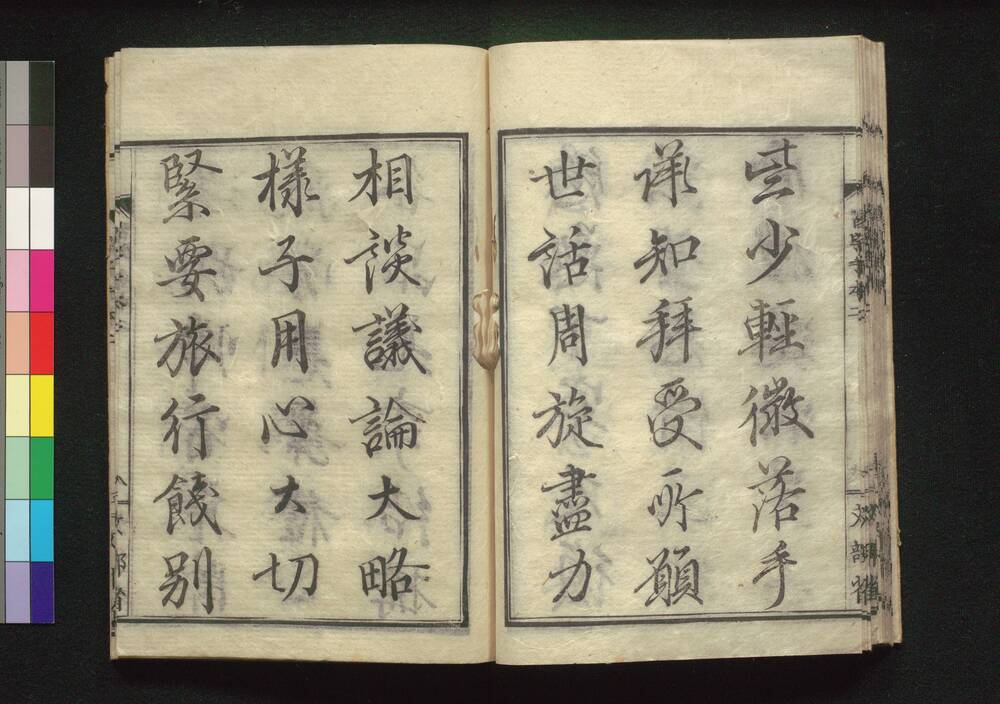 些少輕微落手
承知拜受所願
世話周旋盡力
相談議論大略
樣子用心大切
緊要旅行餞別